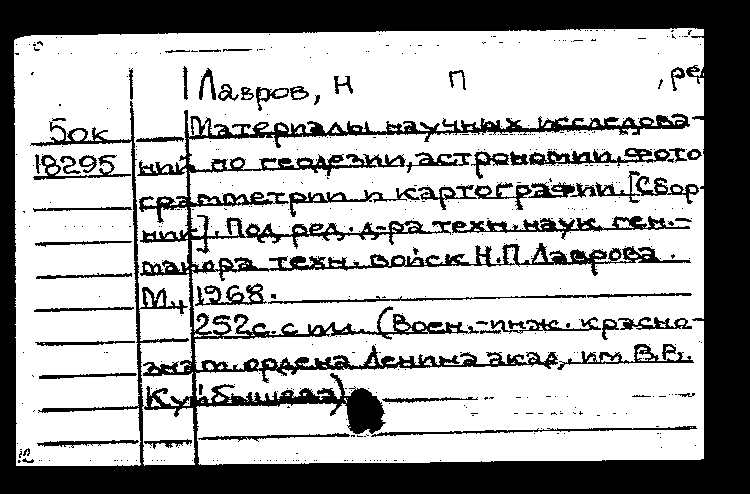 Лавров, Н П , ред
50к Материалы научных исследова-
18295 ний по геодезии, астрономии, фото
грамметрии и картографии. [Сбор-
ник]. Под ред. д-ра техн. наук ген.-
майора техн. войск Н.П. Лаврова.
М., 1968.
252с. с ил. (Воен.-инж. красно-
знам. ордена Ленина акад. им В.В.
Куйбышева)
12